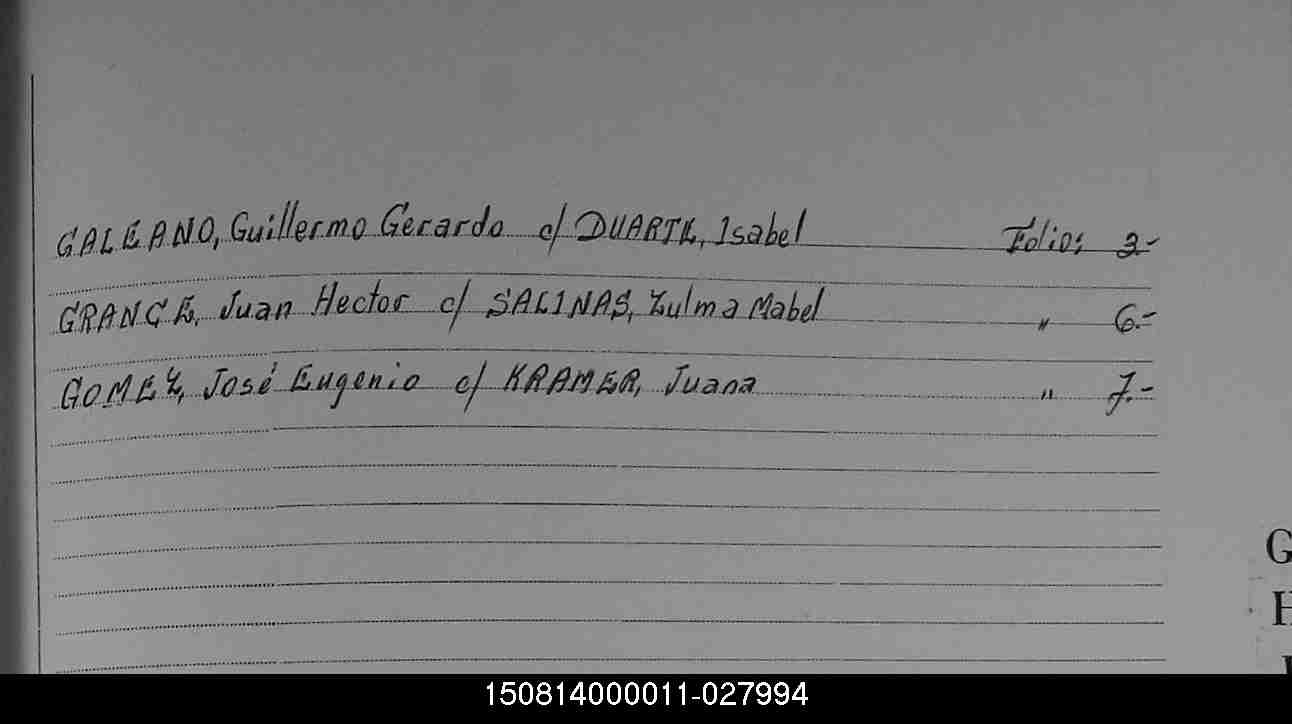 GALEANO, Guillermo Gerardo c/ DUARTE, Isabel Folio: 3.-
GRANCE, Juan Hector c/ SALINAS, Zulma Mabel " 6.-
GOMEZ, José Eugenio c/ KRAMER, Juana " 7.-
G
H
150814000011-027994